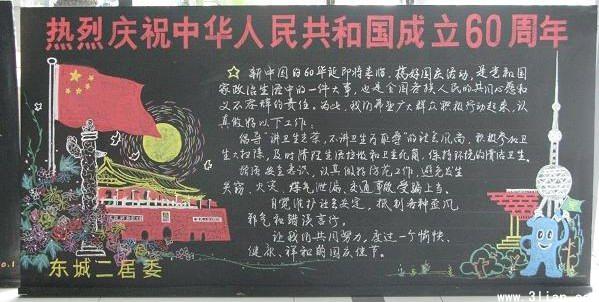 热烈庆祝中华人民共和国成立60周年
☆ 新中国的60华诞即将来临，搞好国庆活动，是党和国
家政治生活中的一件大事，也是全国各族人民的共同心愿和
义不容辞的责任。为此，我们希望广大群众积极行动起来，认
真做好以下工作：
倡导“讲卫生光荣，不讲卫生可耻”的社会风尚，积极参加卫
生大扫除，及时清理生活垃圾和卫生死角，保持环境的清洁卫生。
提高安全意识，认真做好防范工作，避免发生
失窃、火灾、煤气泄漏、交通事故受骗上当。
自觉维护社会安定，抵制各种歪风
邪气和错误言行。
让我们共同努力，度过一个愉快、
健康、祥和的国庆佳节。
东城二居委
www.3lian.com